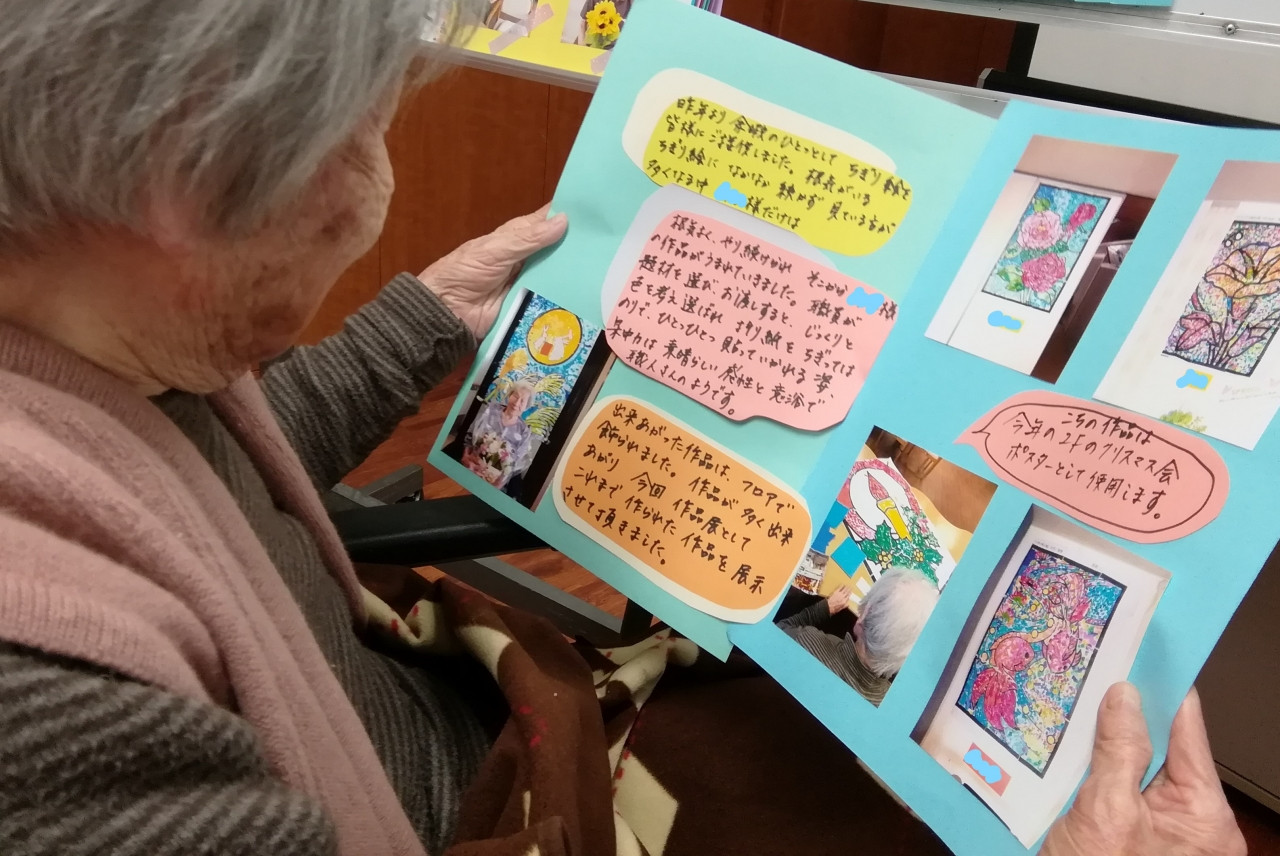 昨年より 余暇のひとつとして ちぎり絵を
皆様にご提供しました。根気がいる
ちぎり絵に なかなか 続かず 見ている方が
多くなる中 様だけは
根気よく、やり続けられ そこから 様
の作品がうまれていきました。職員が
題材を選び お渡しすると、じっくりと
色を考え選ばれ 折り紙を ちぎっては
のりで、ひとつひとつ 貼っていかれる 姿、
集中力は 素晴らしい 感性と 意欲で
職人さんのようです。
出来あがった作品は、フロアで
飾られました。作品が 多く出来
あがり 今回 作品展として
これまで 作られた 作品を 展示
させて頂きました。
こちらの作品は
今年の2Fのクリスマス会
ポスターとして使用します。